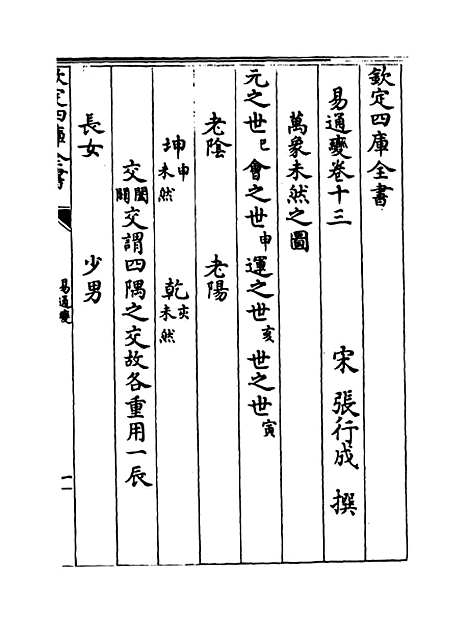 欽定四庫全書
易通變卷十三
宋 張行成 撰
萬象未然之圖
元之世巳會之世申運之世亥世之世寅
老陰 老陽
坤申未然 乾亥未然
交闔闢交謂四隅之交故各重用一辰
長女 少男
欽定四庫全書
易通變
一